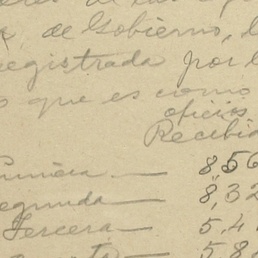 de Gobierno, l
registrada por l
o que es como
oficios
Recibid
Primera — 8,56
Segunda — 8,32
Tercera — 5.4
5.8